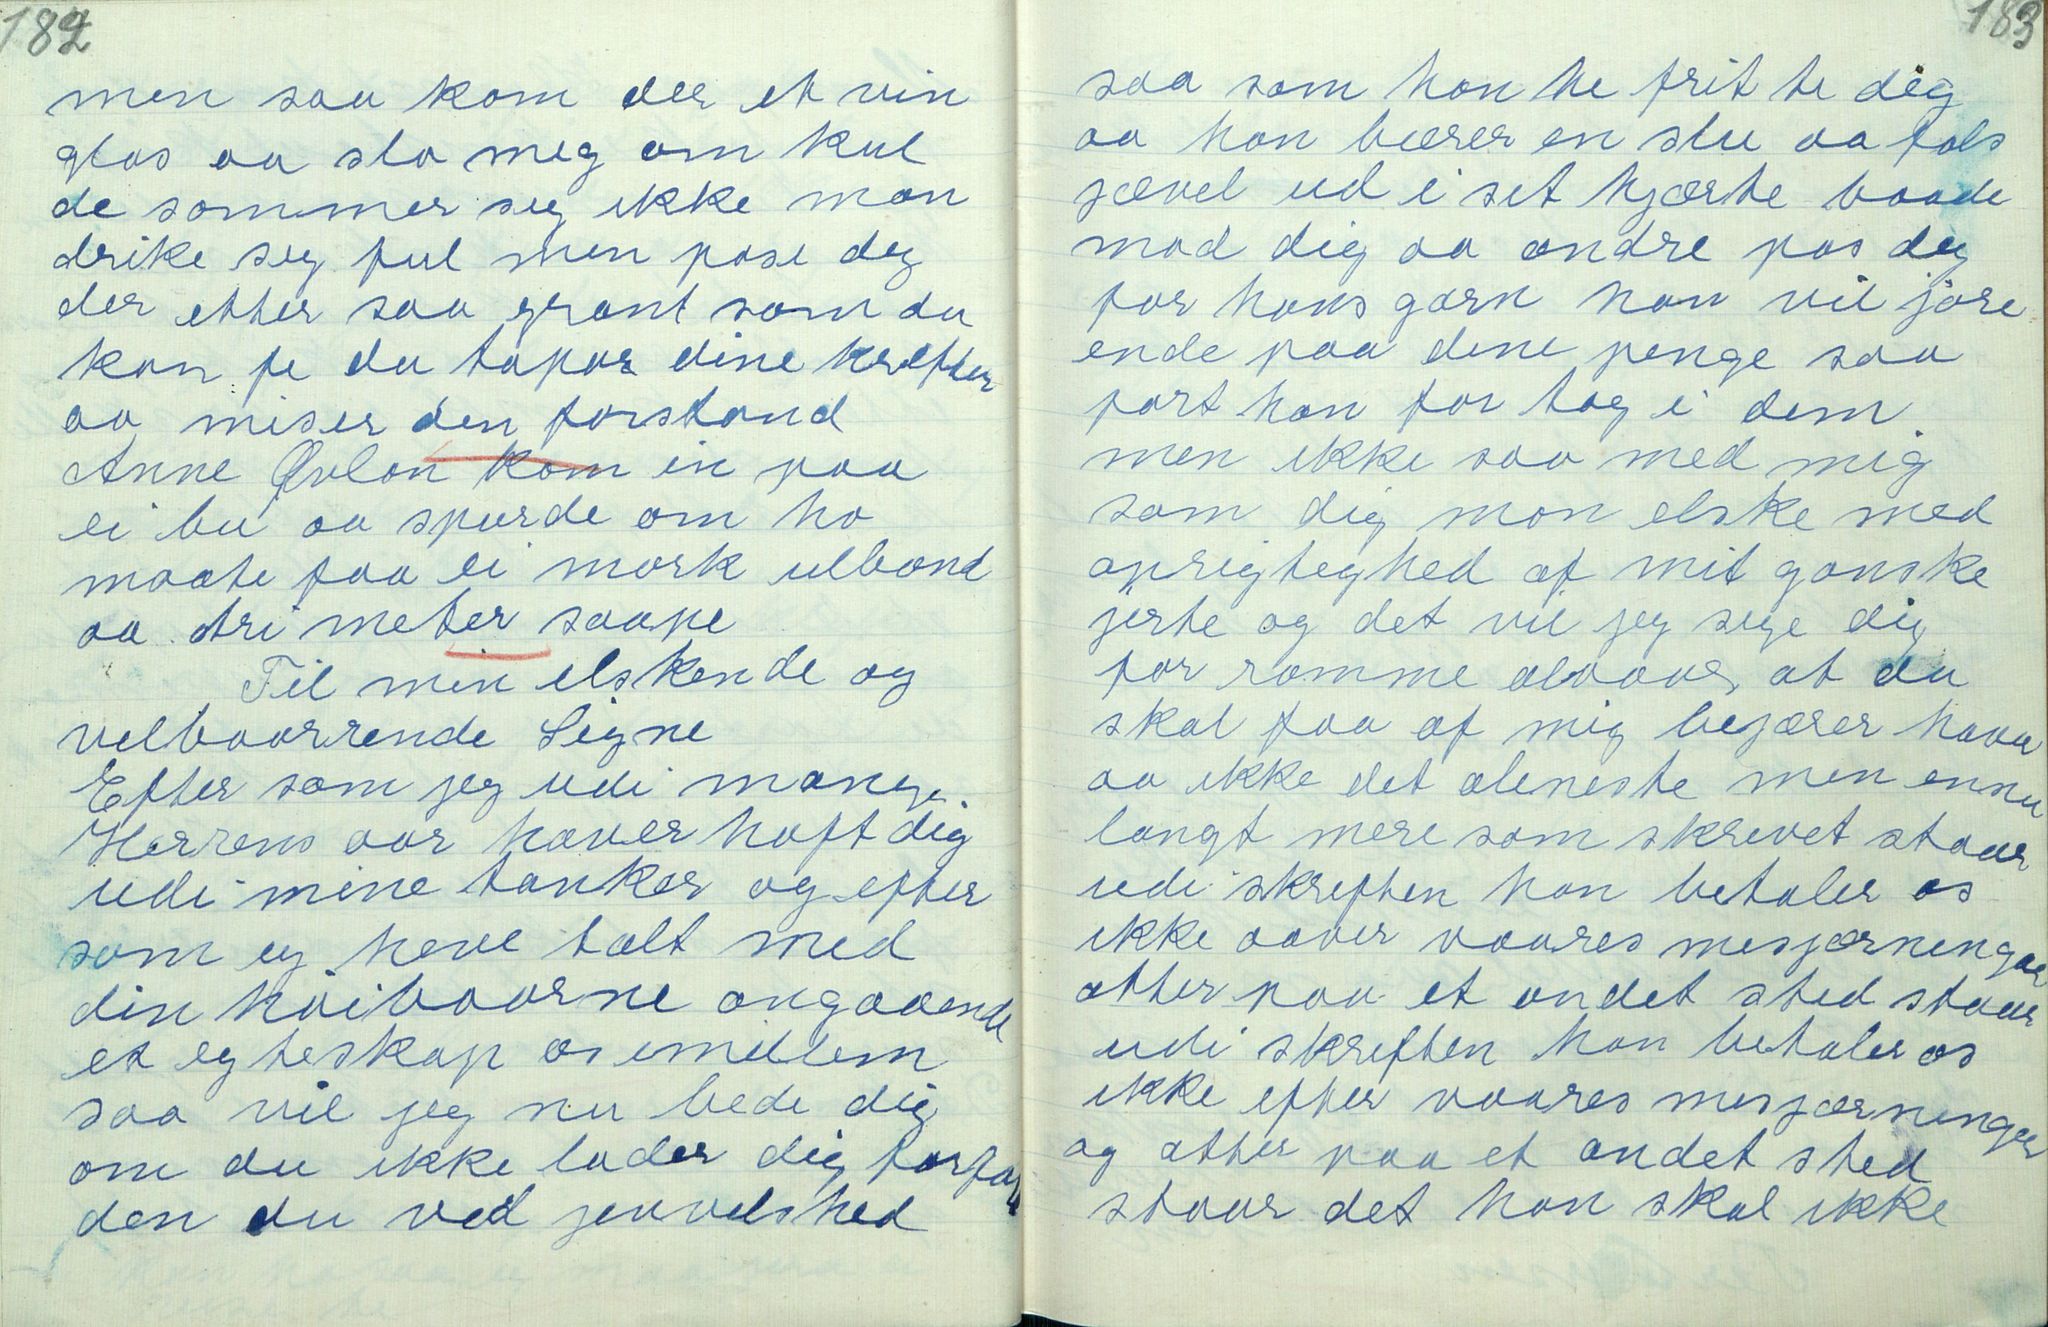 182
men saa kom der et vin
glas aa slo meg om kul
de sommer seg ikke man
drike seg ful men pase deg
der etter saa grant som du
kan fe du tapar dine krefter
aa miser den forstand
Anne Øvlan kom in paa
ei bu aa spurde om ho
maate faa ei mark ulband
aa tri meter saape
Til min elskende og
velbaarrende Signe
Efter som jeg udi mange
Herrens aar haver haft dig
udi mine tanker og efter
som eg heve talt med
din høibaarne angaaende
et egteskap os imillem
saa vil jeg nu bede dig
om du ikke lader dig
den du ved jevvelshed
183
saa som han he frit te dig
aa han bærer en slu aa fals
jævel ud i set hjærte baade
mod dig aa andre pas deg
for hans garn han vil jøre
ende paa dine penge saa
fort han for tag i dem
men ikke saa med mig
som dig mon elske med
oprigteghed af mit ganske
jerte og det vil jeg sige dig
for ramme alvaar, at du
skal faa af mig bejærer have
aa ikke det aleneste men ennu
langt mere som skrevet staar
udi skreften han betaler os
ikke aaver vaares mesjærningaer
atter paa et andet sted staar
udi skreften han betaler os
ikke efter vaares mesjærninger
og atter paa et andet sted
staar det han skal ikke